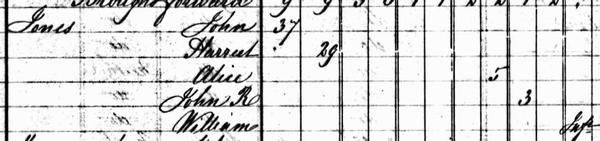 Brought forward 9 9 3 1 1 2 2 1 2
Jones John 37
" Harriet 29
Alice 5
John R 3
William Inft